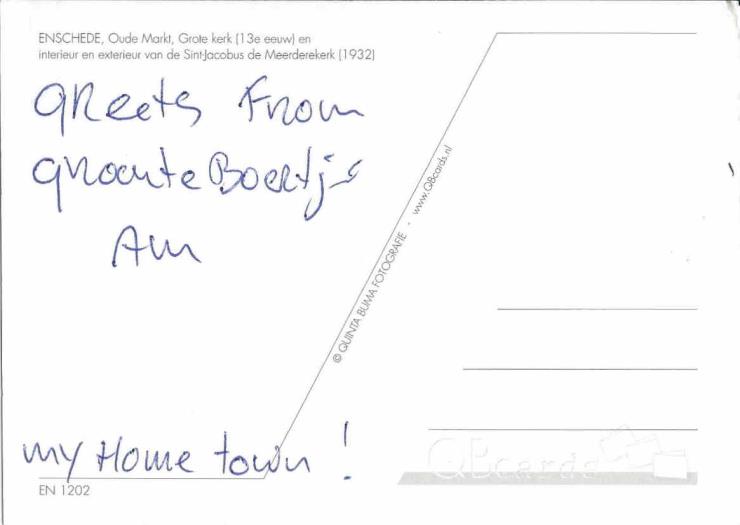 ENSCHEDE, Oude Markt, Grote kerk (13e eeuw) en
interieur en exterieur van de Sint-Jacobus de Meerderekerk (1932)
GReets From
GRoenteBoertje
© QUINTA BUMA FOTOGRAFIE - www.QBcards.nl
my Home town !
EN 1202
QBcards